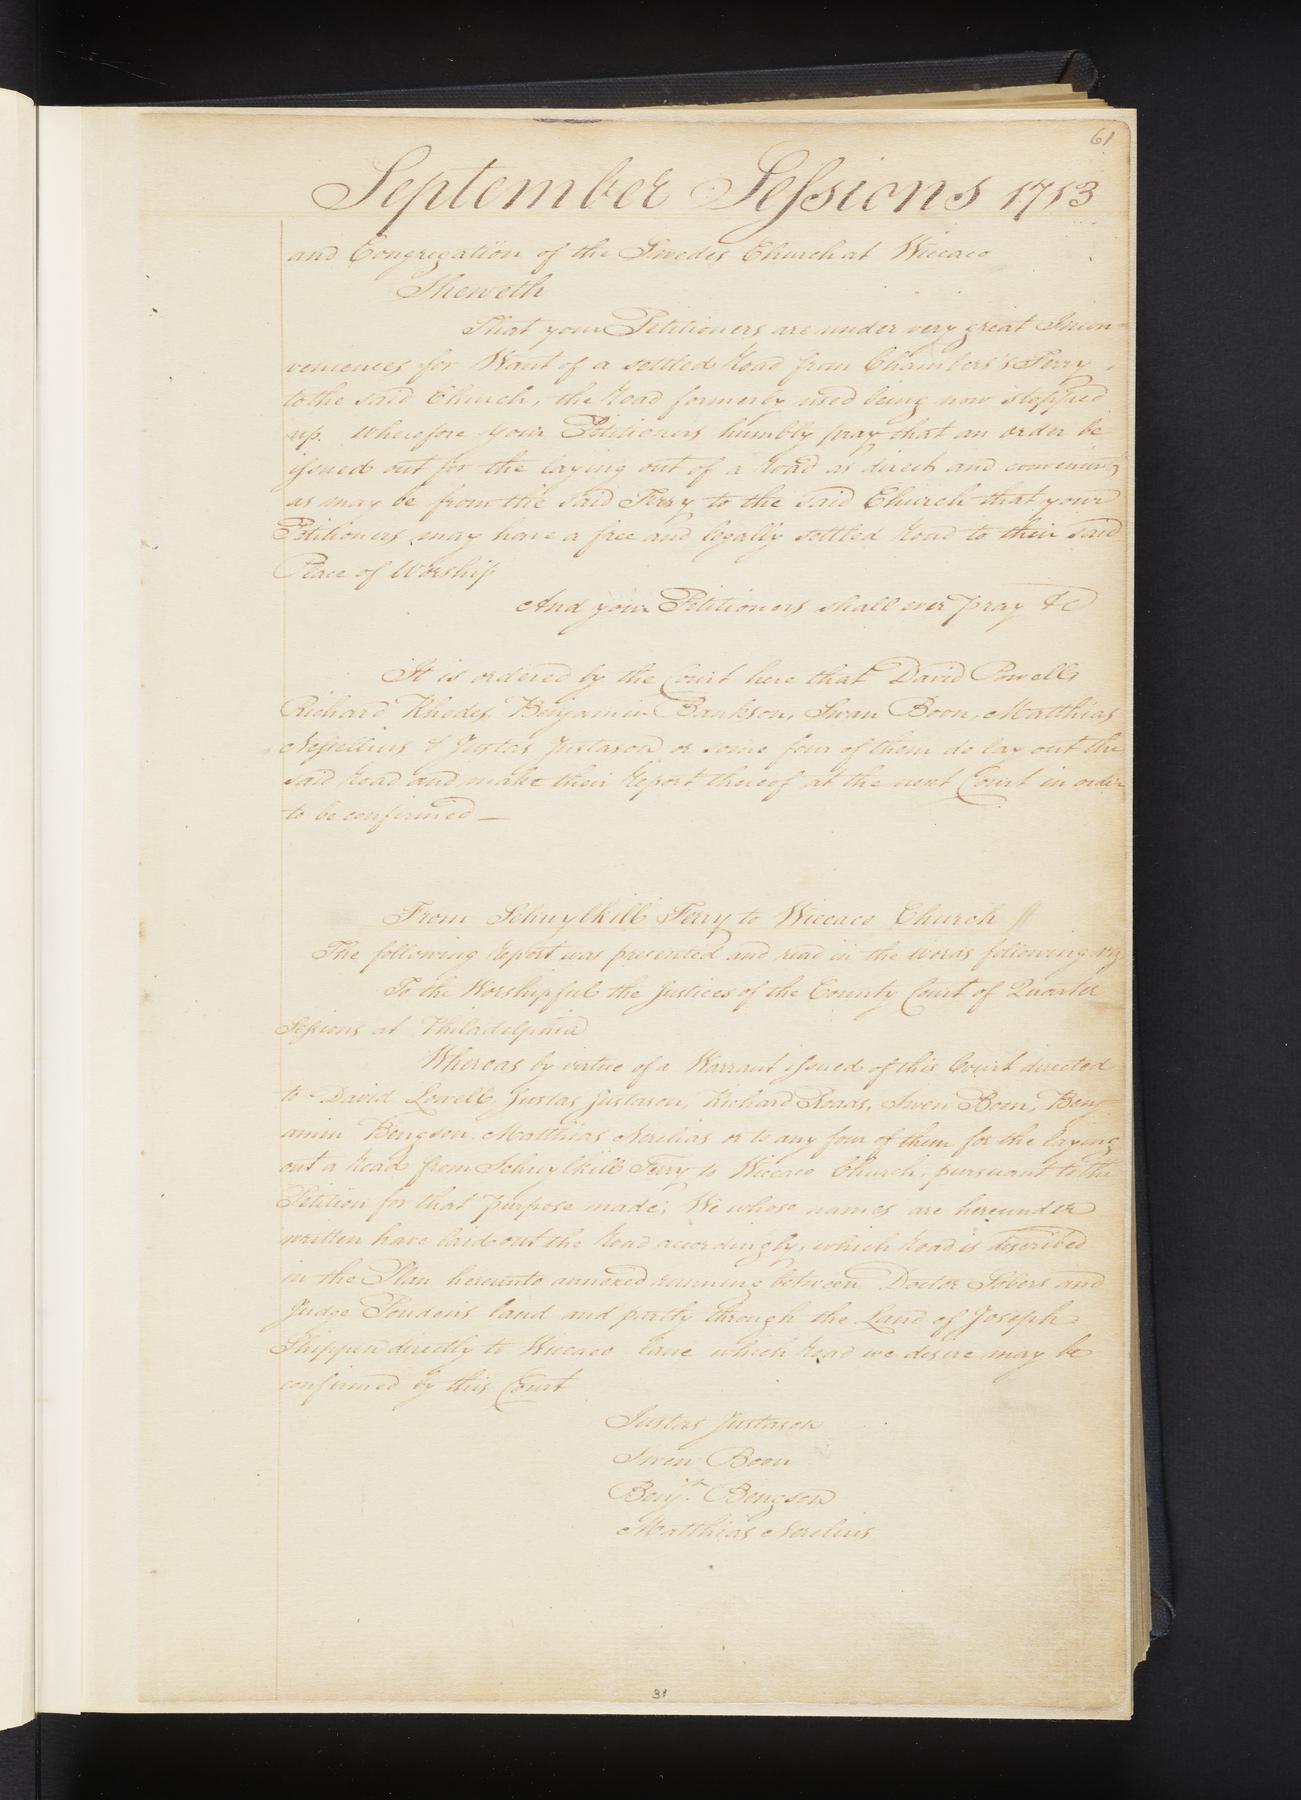 61
September Sessions 1713
and Congregation of the Swedes Church at Wiccaco
Sheweth
That your Petitioners are under very great Incon-
veniences for Want of a settled Road from Chambers's Ferry
to the said Church, the Road formerly used being now stopped
up. Wherefore your Petitioners humbly pray that an order be
issued out for the laying out of a Road as direct and convenient
as may be from the said Ferry to the said Church that your
Petitioners may have a free and legally settled Road to their said
Place of Worship
And your Petitioners shall ever pray &c
It is ordered by the Court here that David Powell,
Richard Rhodes, Benjamin Bankson, Swan Boon, Matthias
Nessellius & Justas Justason or some four of them do lay out the
said Road and make their Report thereof at the next Court in order
to be confirmed —
From Schuylkill Ferry to Wiccaco Church //
The following Report was presented and read in the words following viz
To the Worshipful the Justices of the County Court of Quarter
Sessions at Philadelphia
Whereas by virtue of a Warrant issued of this Court directed
to David Lowell, Justas Justason, Richard Roads, Swen Boon, Benj
amin Bengson, Matthias Nerelias or to any four of them for the laying
out a Road from Schuylkill Ferry to Wiccaco Church, pursuant to the
Petition for that purpose made; We whose names are hereunder
written have laid out the Road accordingly, which Road is discribed
in the Plan hereunto annexed running between Doctor Sobers and
Judge Poudens land and partly through the Land of Joseph
Shippen directly to Wiccaco lane which Road we desire may be
confirmed by this Court
Justas Justason
Swen Boon
Benjn. Bengson
Matthias Nerelius
31